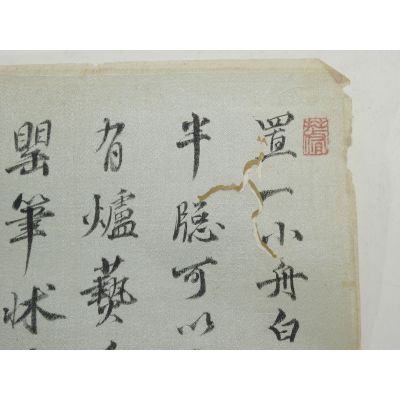 置一小舟白
半隐可以
有爐爇
罌筆牀